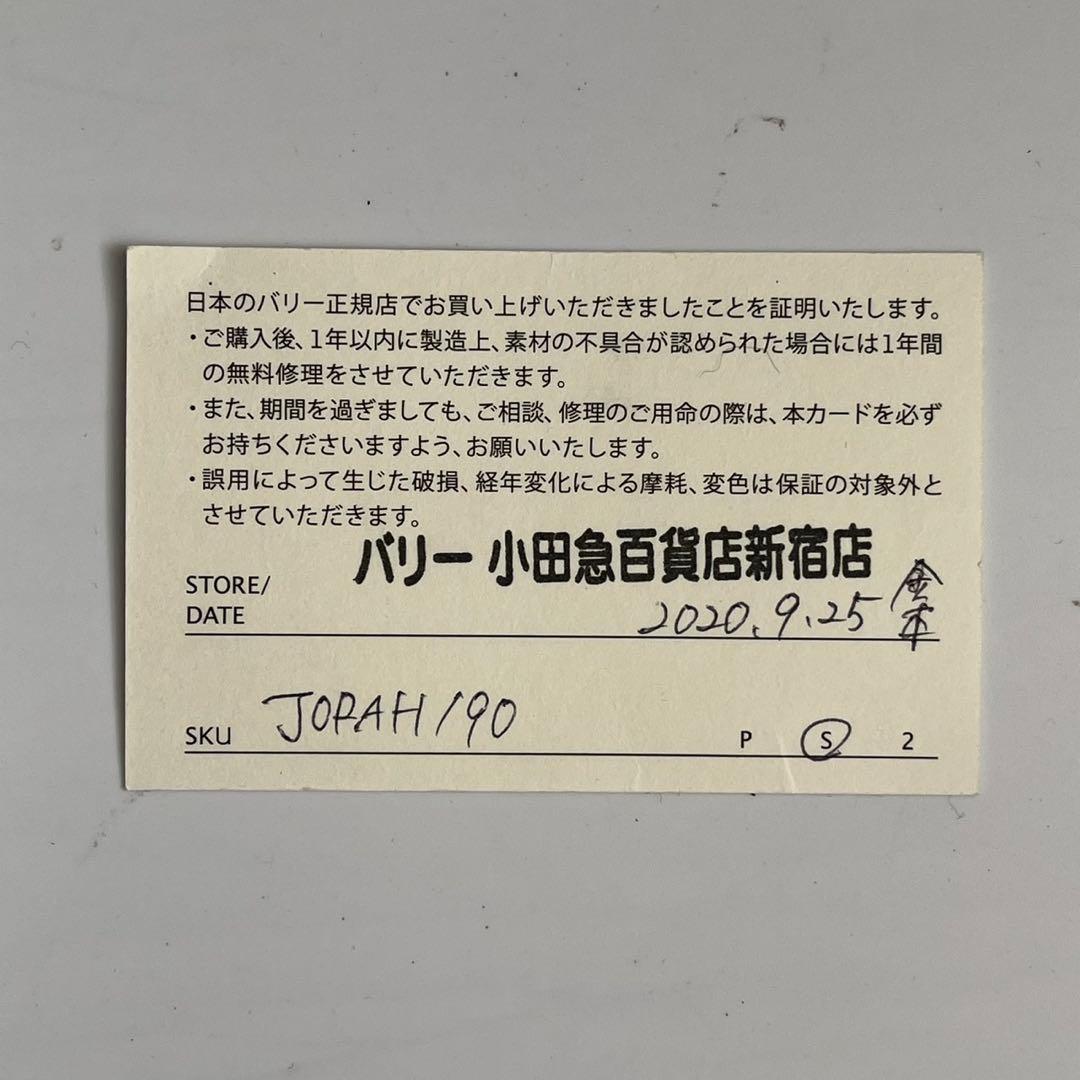 日本のバリー正規店でお買い上げいただきましたことを証明いたします。
・ご購入後、1年以内に製造上、素材の不具合が認められた場合には1年間
の無料修理をさせていただきます。
・また、期間を過ぎましても、ご相談、修理のご用命の際は、本カードを必ず
お持ちくださいますよう、お願いいたします。
・誤用によって生じた破損、経年変化による摩耗、変色は保証の対象外と
させていただきます。
バリー 小田急百貨店新宿店
STORE/
DATE 2020.9.25 金本
SKU JORAH/90 P S 2